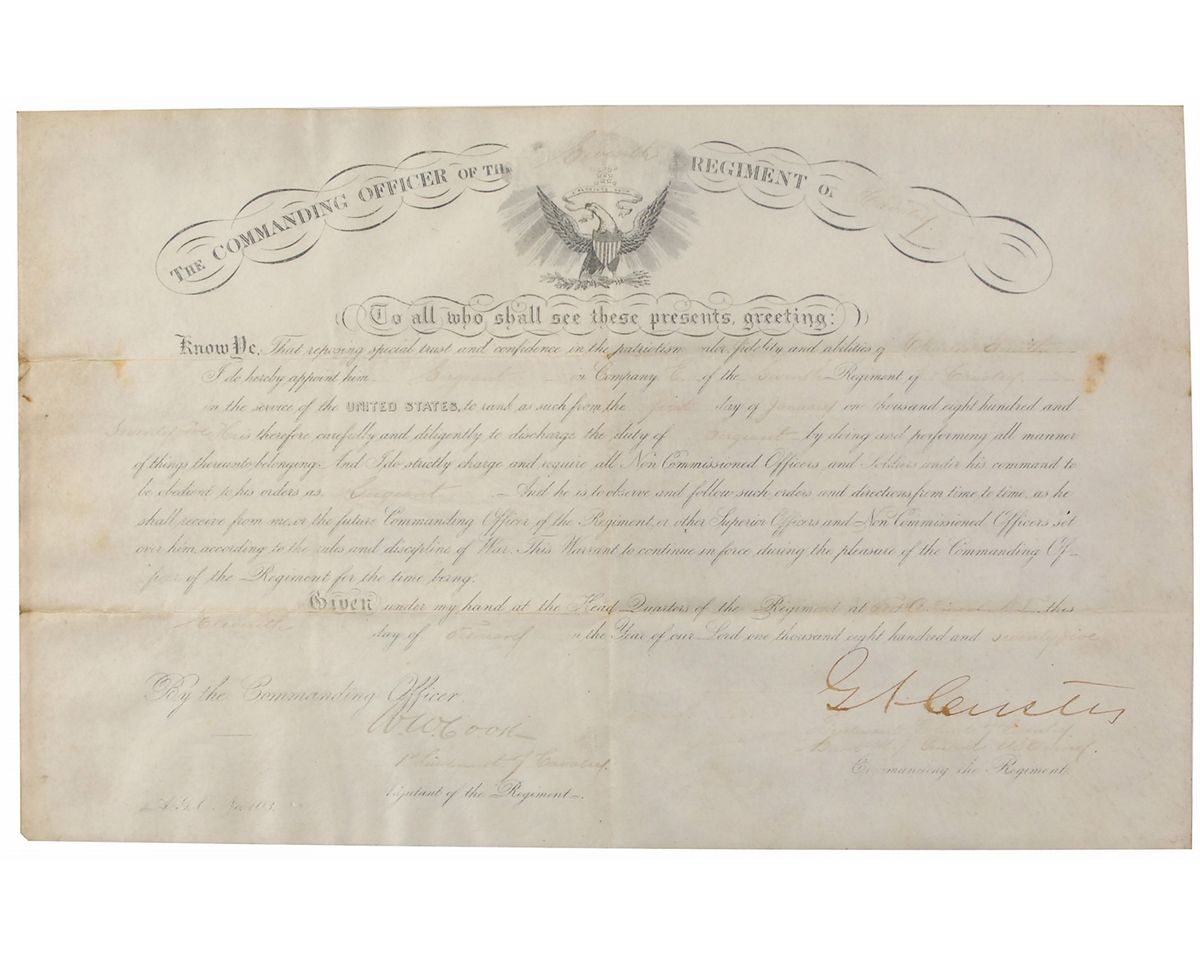 THE COMMANDING OFFICER OF THE Seventh REGIMENT OF Cavalry.
To all who shall see these presents, greeting:
Know Ye, That reposing special trust and confidence in the patriotism valor, fidelity and abilities of
I do hereby appoint him Sergeant in Company of the Seventh Regiment of Cavalry
in the service of the UNITED STATES, to rank as such from the first day of January one thousand eight hundred and
Seventy five He is therefore carefully and diligently to discharge the duty of Sergeant by doing and performing all manner
of things thereunto belonging. And I do strictly charge and require all Non Commissioned Officers and Soldiers under his command to
be obedient to his orders as Sergeant And he is to observe and follow such orders and directions from time to time, as he
shall receive from me, or the future Commanding Officer of the Regiment, or other Superior Officers and Non Commissioned Officers set
over him, according to the rules and discipline of War. This Warrant to continue in force during the pleasure of the Commanding Of-
ficer of the Regiment for the time being.
Given under my hand at the Head Quarters of the Regiment at this
Eleventh day of in the Year of our Lord one thousand eight hundred and seventy five
By the Commanding Officer.
W.W. Cook
1st Lieutenant 7 Cavalry.
Adjutant of the Regiment.
G A Custer
Lieutenant
Commanding the Regiment.
A.G.O. No. 103.